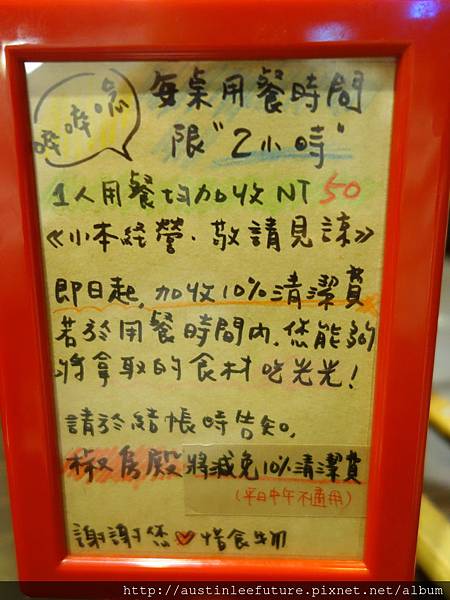 嘿嘿嘿
每桌用餐時間
限"2小時"
1人用餐均加收NT 50
《小本経營.敬請見諒》
即日起,加收10%清潔費
若於用餐時間內,您能夠
將拿取的食材吃光光!
請於結帳時告知,
椒房殿將減免10%清潔費
(平日中午不適用)
謝謝您♥惜食物
http://austinleefuture.pixnet.net/album